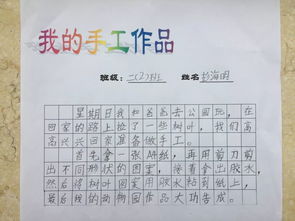 我的手工作品
班级：二(2)班 姓名 海明
星期日我和爸爸去公园玩，在
回家的路上捡了一些树叶，我们高
高兴兴回家准备做手工。
首先拿一张A4纸，再用剪刀剪
出不同形状的图案，接着拿出胶水，
然后将树叶图案用胶水粘到纸上，
最后我的动物园作品大功告成。